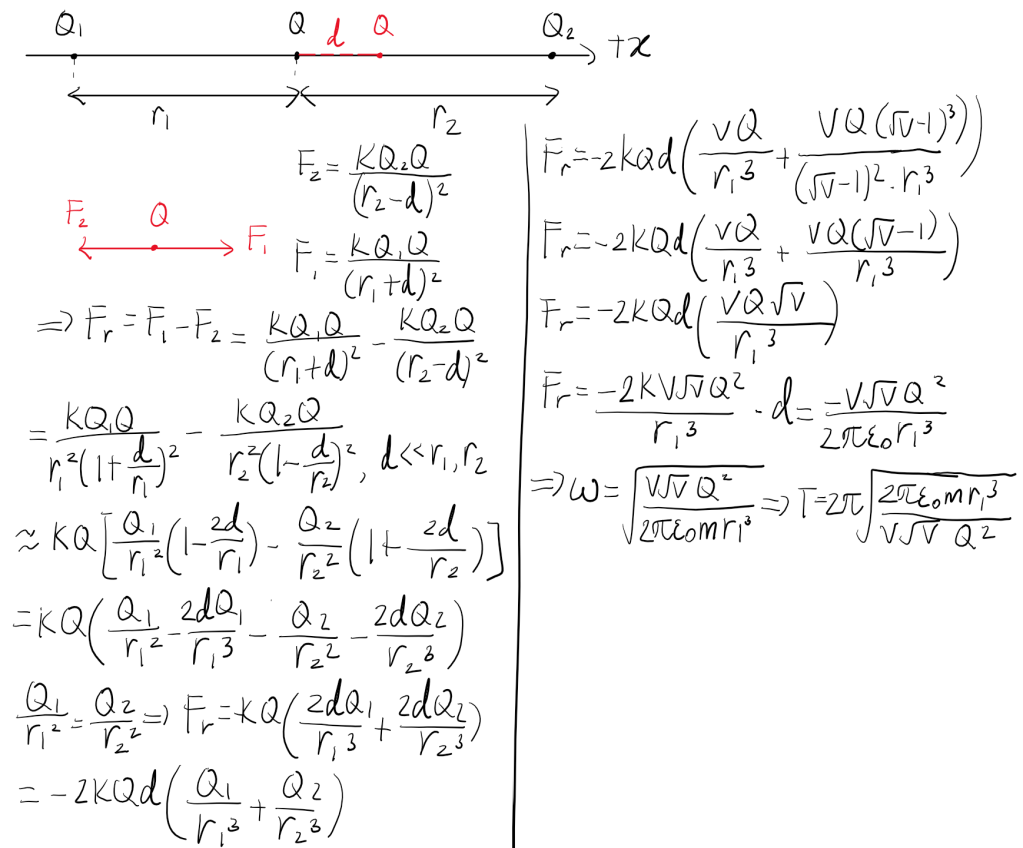 Q₁ Q d Q Q₂ +x
r₁ r₂
F₂ = KQ₂Q/(r₂-d)²
F₂ Q F₁
F₁ = KQ₁Q/(r₁+d)²
⇒ Fᵣ = F₁ - F₂ = KQ₁Q/(r₁+d)² - KQ₂Q/(r₂-d)²
= KQ₁Q/r₁²(1+d/r₁)² - KQ₂Q/r₂²(1-d/r₂)², d<<r₁,r₂
≈ KQ[Q₁/r₁²(1-2d/r₁) - Q₂/r₂²(1+2d/r₂)]
= KQ(Q₁/r₁² - 2dQ₁/r₁³ - Q₂/r₂² - 2dQ₂/r₂³)
Q₁/r₁² = Q₂/r₂² ⇒ Fᵣ = KQ(2dQ₁/r₁³ + 2dQ₂/r₂³)
= -2KQd(Q₁/r₁³ + Q₂/r₂³)
Fᵣ = -2KQd(VQ/r₁³ + VQ(√V-1)³/(√V-1)²·r₁³)
Fᵣ = -2KQd(VQ/r₁³ + VQ(√V-1)/r₁³)
Fᵣ = -2KQd(VQ√V/r₁³)
Fᵣ = -2KV√VQ²/r₁³ · d = -V√VQ²/2πε₀r₁³
⇒ ω = √(V√VQ²/2πε₀mr₁³) ⇒ T = 2π√(2πε₀mr₁³/V√V Q²)